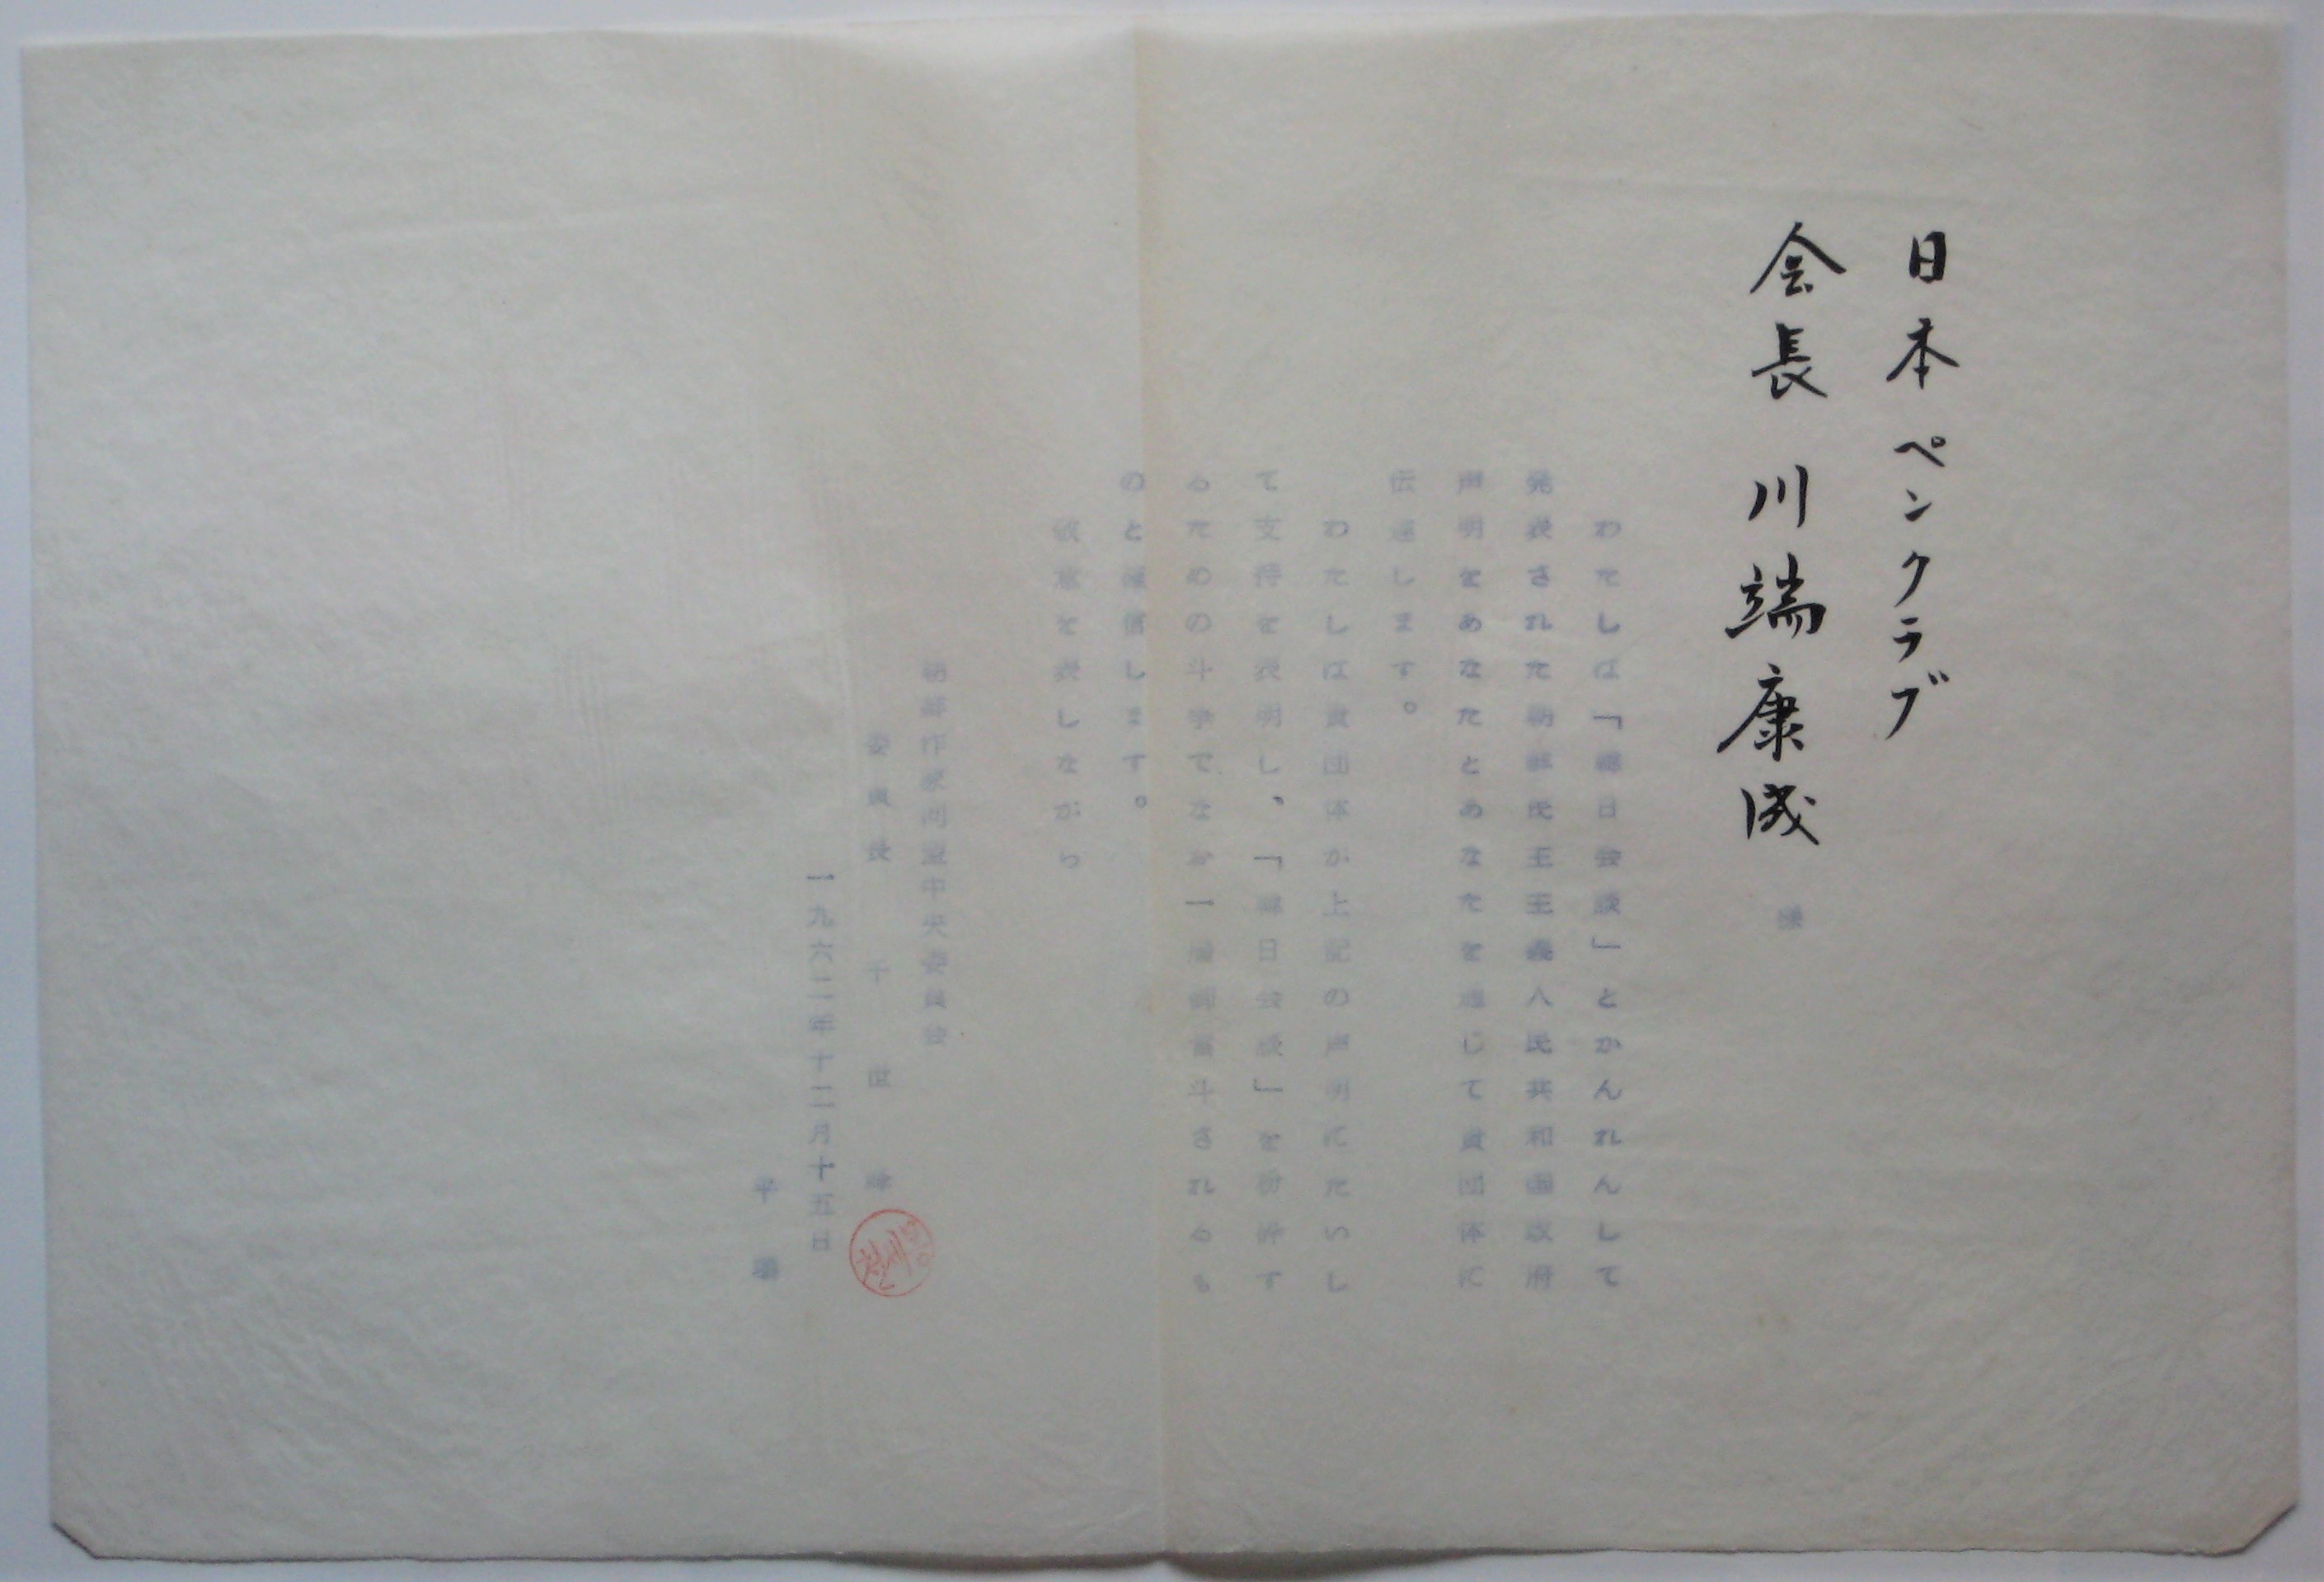 日本ペンクラブ
会長 川端康成 様
わたしは「韓日会談」とかんれんして
発表された朝鮮民主主義人民共和国政府
声明をあなたとあなたを通じて貴団体に
伝達します。
わたしは貴団体が上記の声明にたいし
て支持を表明し、「韓日会談」を粉砕す
るための斗争でなお一層御奮斗されるも
のと確信します。
敬意を表しながら
朝鮮作家同盟中央委員会
委員長 千世峰
천세봉
一九六二年十二月十五日
平壌